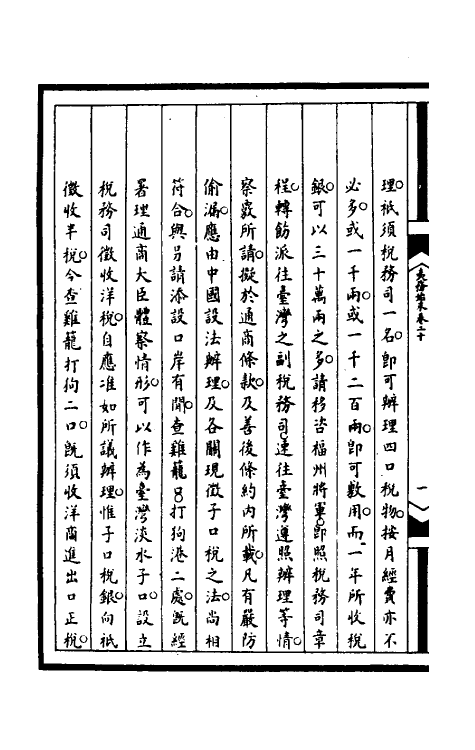 理祇須稅務司一名即可辦理四口稅物按月經費亦不
必多或一千兩或一千二百兩即可敷用而一年所收稅
銀可以三十萬兩之多請移咨福州將軍即照稅務司章
程轉飭派往臺灣之副稅務司速往臺灣遵照辦理等情
察覈所請擬於通商條款及善後條約內所載凡有嚴防
偷漏應由中國設法辦理及各關現徵子口稅之法尚相
符合與另請添設口岸有間查雞籠口打狗港二處既經
署理通商大臣體察情形可以作為臺灣淡水子口設立
稅務司徵收洋稅自應准如所議辦理惟子口稅銀向祇
徵收半稅今查雞籠打狗二口既須收洋商進出口正稅
夷務始末卷二十
一